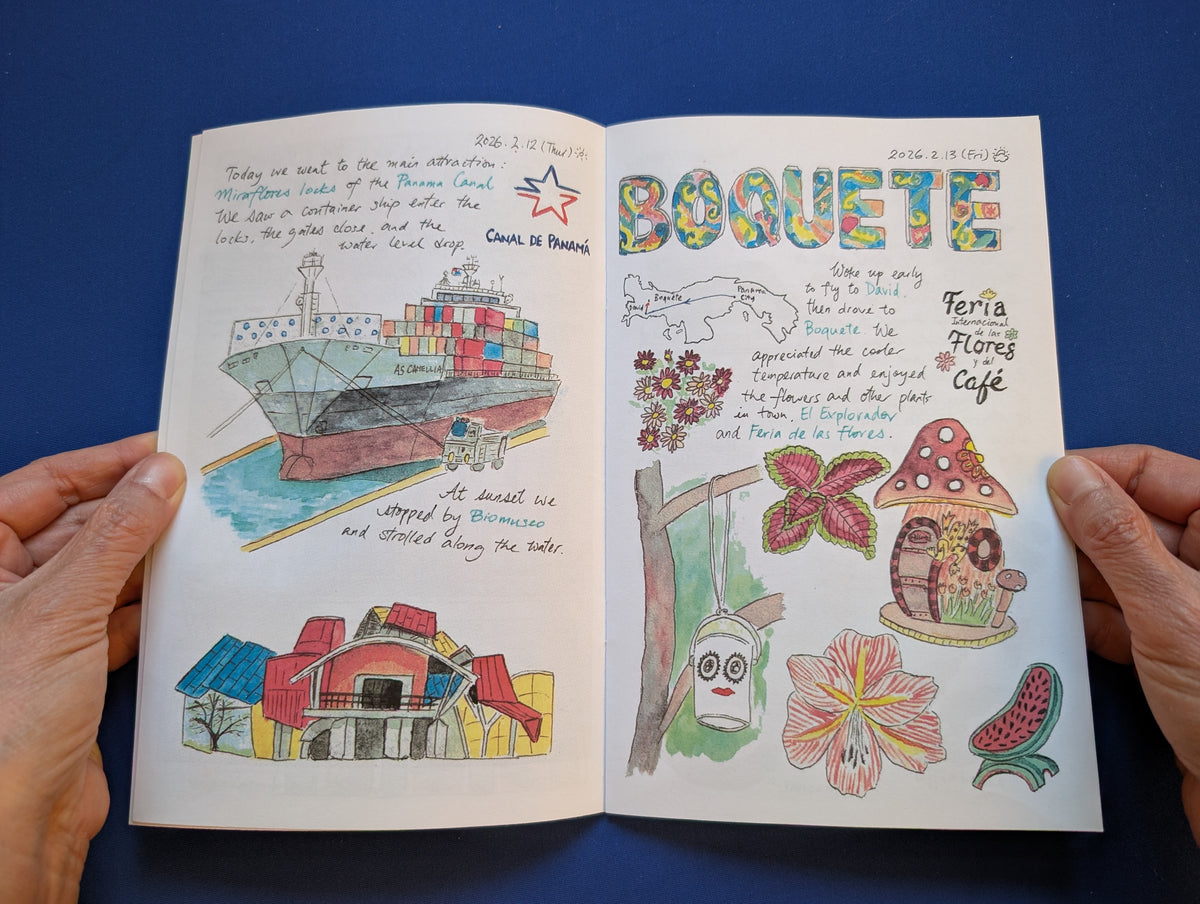 2026.2.12 (Thur)
Today we went to the main attraction:
Miraflores locks of the Panama Canal
We saw a container ship enter the
locks, the gates close, and the
water level drop.
CANAL DE PANAMÁ
AS CAMELLIA
At sunset we
stopped by Biomuseo
and strolled along the water.
2026.2.13 (Fri)
BOQUETE
Panama
City
Boquete
David
Woke up early
to fly to David.
then drove to
Boquete. We
appreciated the cooler
temperature and enjoyed
the flowers and other plants
in town. El Explorador
and Feria de las Flores.
Feria
Internacional
de las
Flores
y del
Café